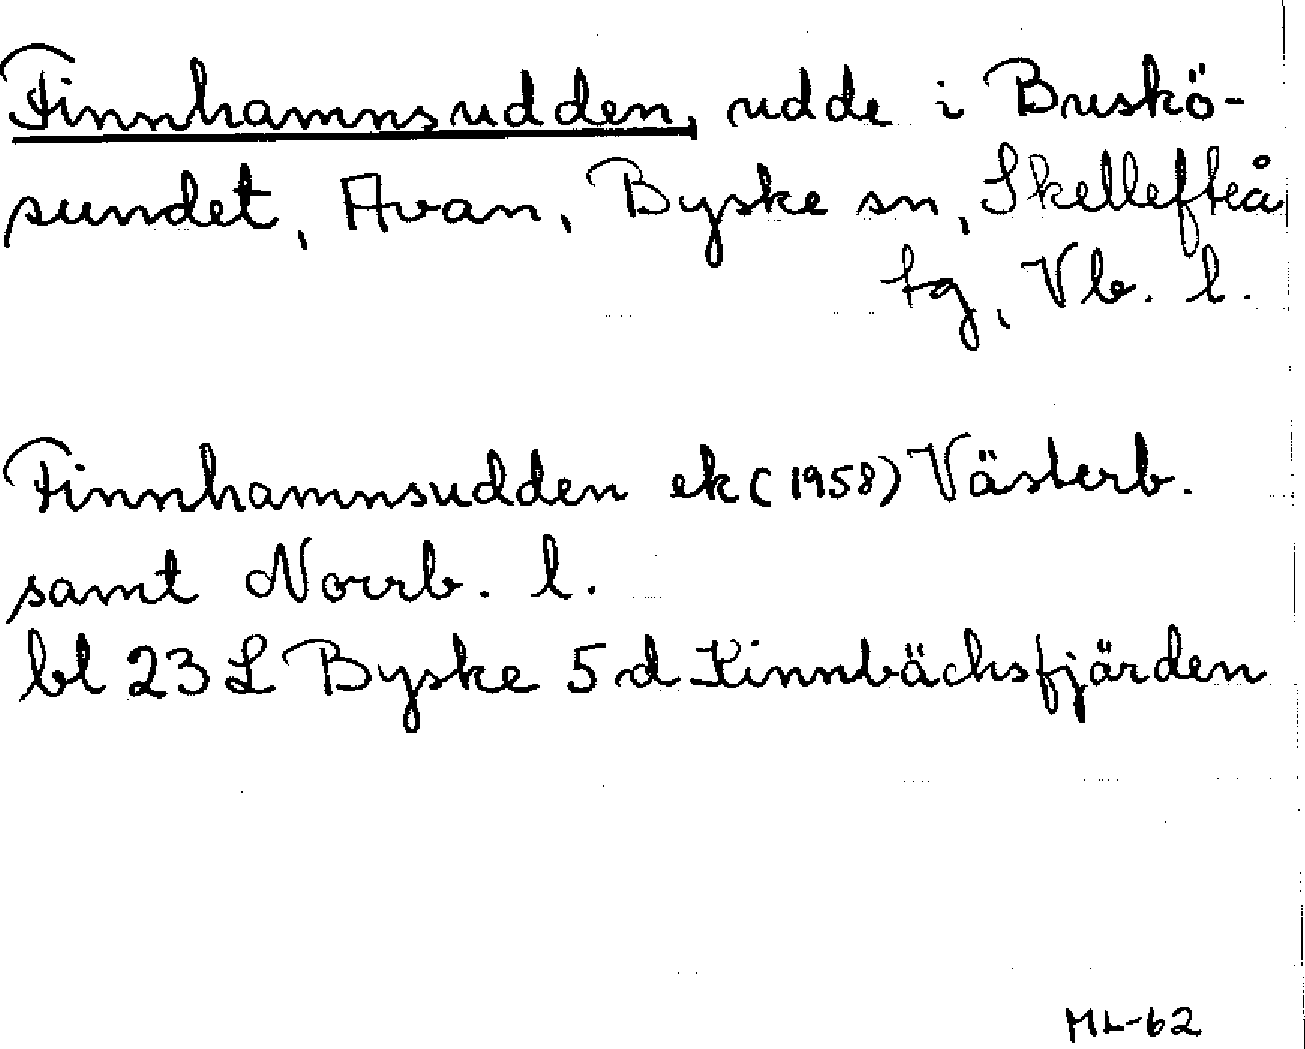 Finnhamnsudden, udde i Buskö-
sundet, Avan, Byske sn, Skellefteå
tg, Vb. l.
Finnhamnsudden ek (1958) Västerb.
samt Norrb. l.
bl 23 L Byske 5 d Kinnbäcksfjärden
ML-62